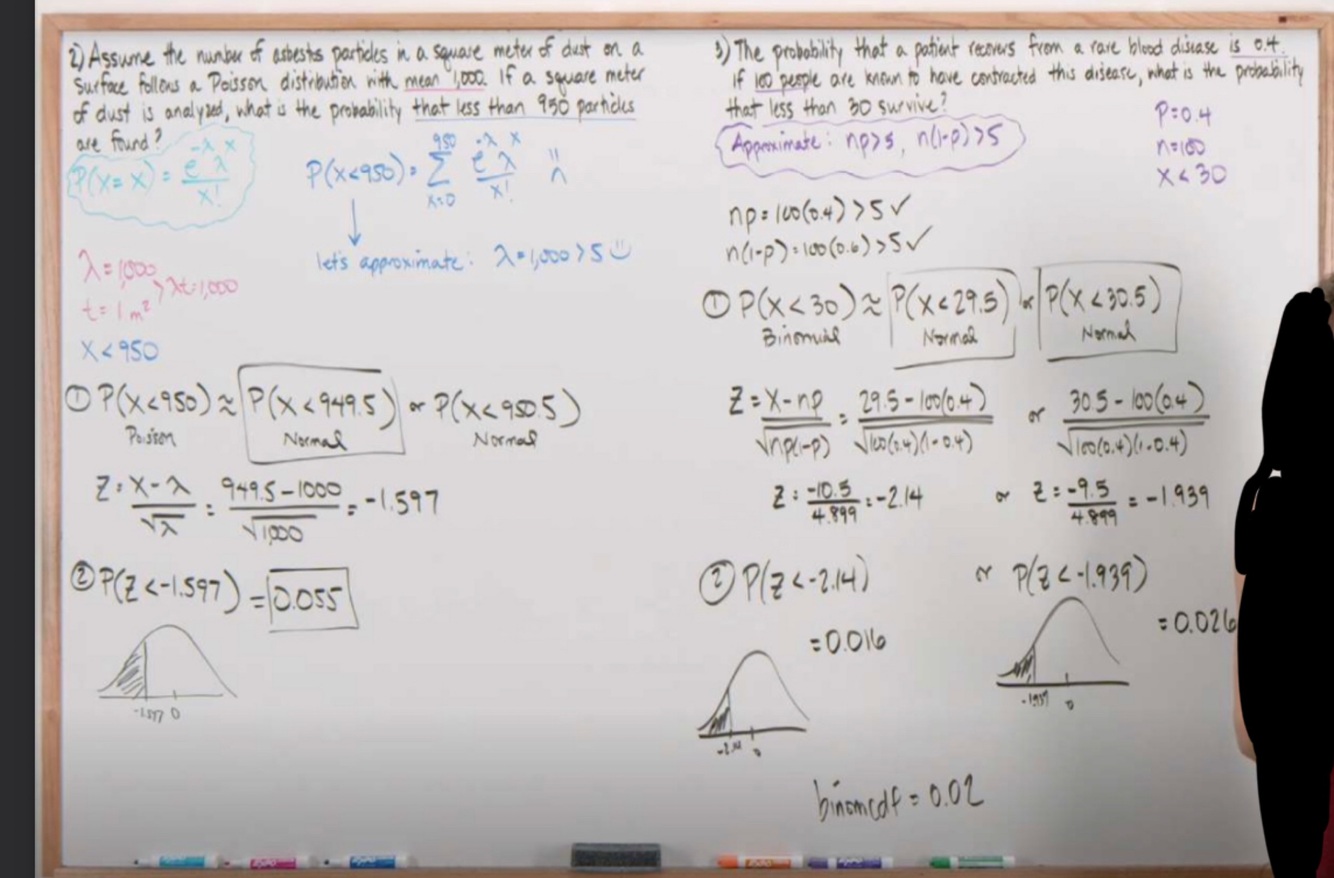 2) Assume the number of asbestos particles in a square meter of dust on a
surface follows a Poisson distribution with mean 1,000. If a square meter
of dust is analyzed, what is the probability that less than 950 particles
are found?
P(X=x) = e^-λ λ^x / x!
P(X<950) = 950 Σ x=0 e^-λ λ^x / x!
let's approximate: λ=1,000>5
λ=1,000
t=1m² > λt=1,000
X<950
① P(X<950) ≈ P(X<949.5) or P(X<950.5)
Poisson Normal Normal
Z = X-λ / √λ = 949.5-1000 / √1,000 = -1.597
② P(Z<-1.597) = 0.055
-1.597 0
3) The probability that a patient recovers from a rare blood disease is 0.4.
If 100 people are known to have contracted this disease, what is the probability
that less than 30 survive?
Approximate: np>5, n(1-p)>5
P=0.4
n=100
X<30
np=100(0.4)>5✓
n(1-p)=100(0.6)>5✓
① P(X<30) ≈ P(X<29.5) or P(X<30.5)
Binomial Normal Normal
Z = X-np / √np(1-p) = 29.5-100(0.4) / √100(0.4)(1-0.4) or 30.5-100(0.4) / √100(0.4)(1-0.4)
Z = -10.5 / 4.899 = -2.14 or Z = -9.5 / 4.899 = -1.939
② P(Z<-2.14) or P(Z<-1.939)
=0.016 =0.026
-2.14 0 -1.939 0
binomcdf = 0.02